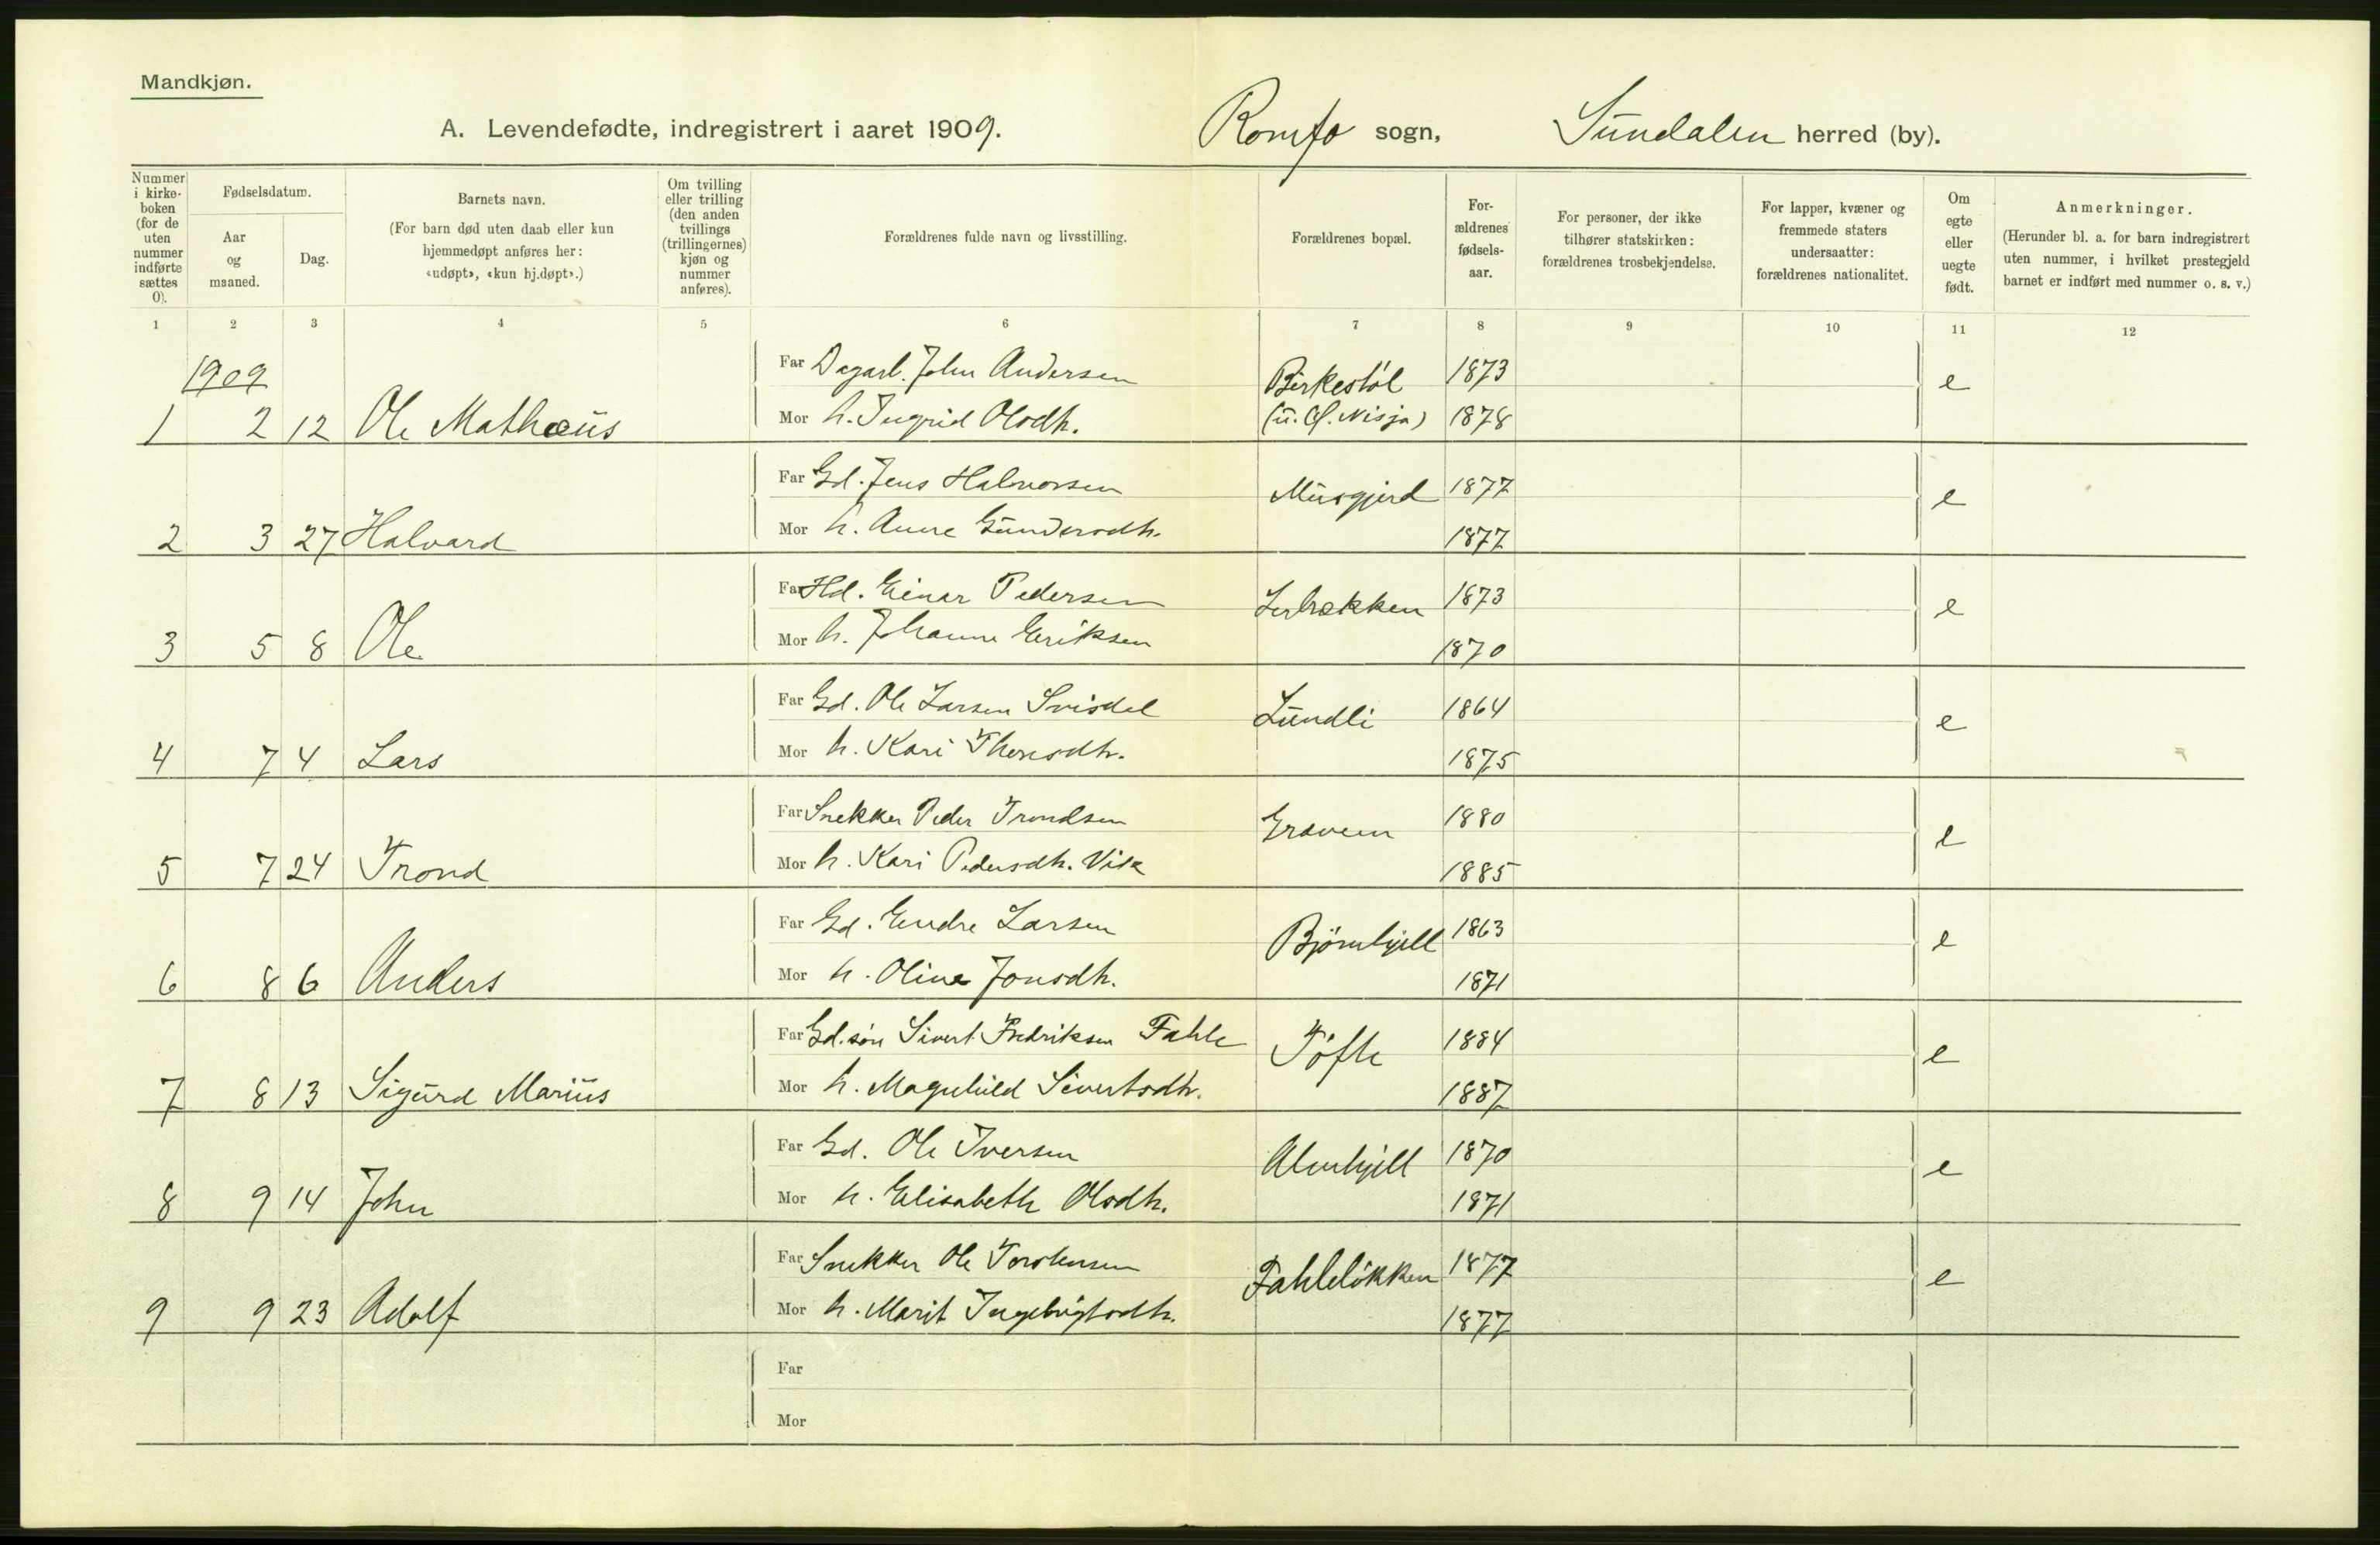 Mandkjøn.
A. Levendefødte, indregistrert i aaret 1909. Romfo sogn, Sundalen herred (by).
Nummer i kirke-boken (for de uten nummer indførte sættes 0).
Fødselsdatum.
Aar og maaned.
Dag.
Barnets navn.
(For barn død uten daab eller kun hjemmedøpt anføres her: «udøpt», «kun hj.døpt».)
Om tvilling eller trilling (den anden tvillings (trillingernes) kjøn og nummer anføres).
Forældrenes fulde navn og livsstilling.
Forældrenes bopæl.
For-ældrenes fødsels-aar.
For personer, der ikke tilhører statskirken: forældrenes trosbekjendelse.
For lapper, kvæner og fremmede staters undersaatter: forældrenes nationalitet.
Om egte eller uegte født.
Anmerkninger.
(Herunder bl. a. for barn indregistrert uten nummer, i hvilket prestegjeld barnet er indført med nummer o. s. v.)
1 2 3 4 5 6 7 8 9 10 11 12
1909
Far Dagarb. John Andersen Birkestøl 1873 e
1 2 12 Ole Mathæus Mor h. Ingrid Olsdtr. (u. Gl. Nisja) 1878
Far Gd. Jens Halvorsen Musgjerd 1877 e
2 3 27 Halvard Mor h. Anne Gundersdtr. 1877
Far Hd. Einar Pedersen Lerbækken 1873 e
3 5 8 Ole Mor h. Johanne Eriksen 1870
Far Gd. Ole Larsen Svisdal Lundli 1864 e
4 7 4 Lars Mor h. Kari Thoresdtr. 1875
Far Snekker Peder Trondsen Gravem 1880 e
5 7 24 Trond Mor h. Kari Pedersdtr. Vik 1885
Far Gd. Endre Larsen Bjørnhjell 1863 e
6 8 6 Anders Mor h. Oline Jonsdtr. 1871
Far Gd.søn Sivert Fredriksen Fahle Tøfte 1884 e
7 8 13 Sigurd Marius Mor h. Magnhild Sivertsdtr. 1887
Far Gd. Ole Iversen Almhjell 1870 e
8 9 14 John Mor h. Elisabeth Olsdtr. 1871
Far Snekker Ole Torstensen Fahleløkken 1877 e
9 9 23 Adolf Mor h. Marit Ingebrigtsdtr. 1877
Far
Mor